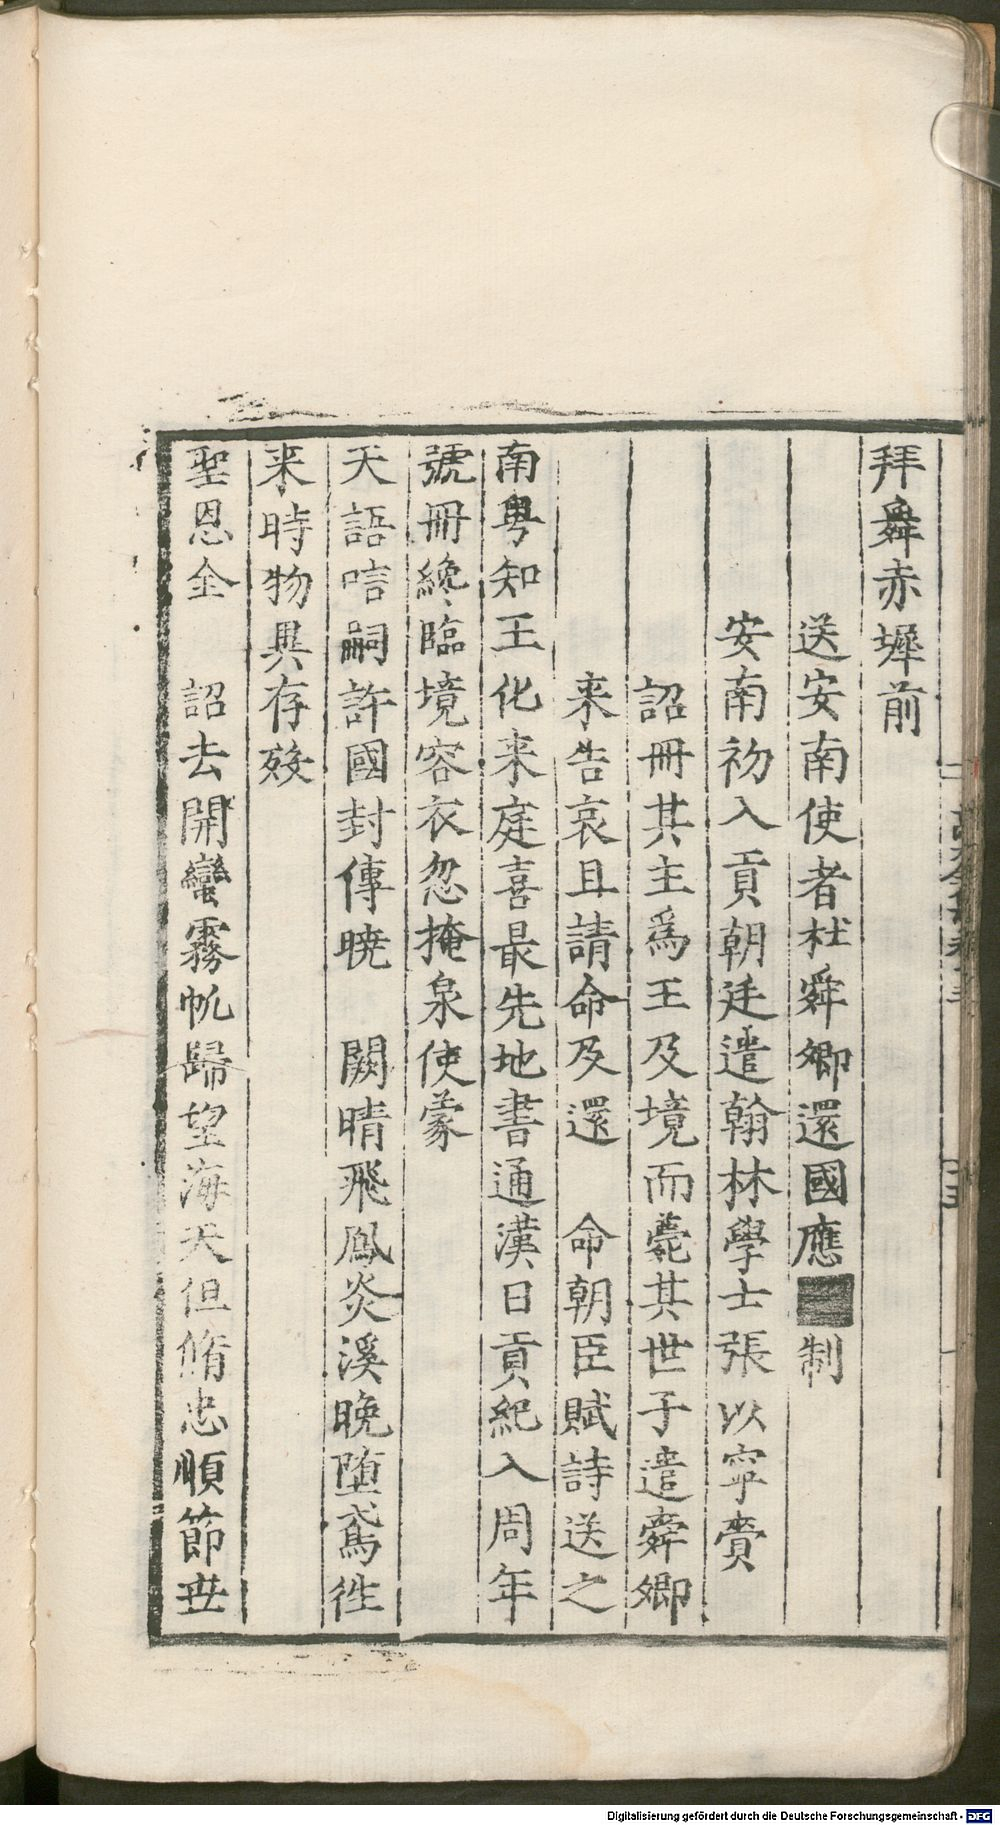 拜舞赤墀前
送安南使者杜舜卿還國應制
安南初入貢朝廷遣翰林學士張以寧賫
詔冊其主爲王及境而薨其世子遣舜卿
来告哀且請命及還　命朝臣賦詩送之
南粤知王化来庭喜最先地書通漢日貢紀入周年
號冊纔臨境容衣忽掩泉使蒙
天語唁嗣許國封傳暁　闕晴飛鳳炎溪晚堕鳶徃
来時物異存殁
聖恩全　詔去開蠻霧帆歸望海天但脩忠順節丗
Digitalisierung gefördert durch die Deutsche Forschungsgemeinschaft - DFG